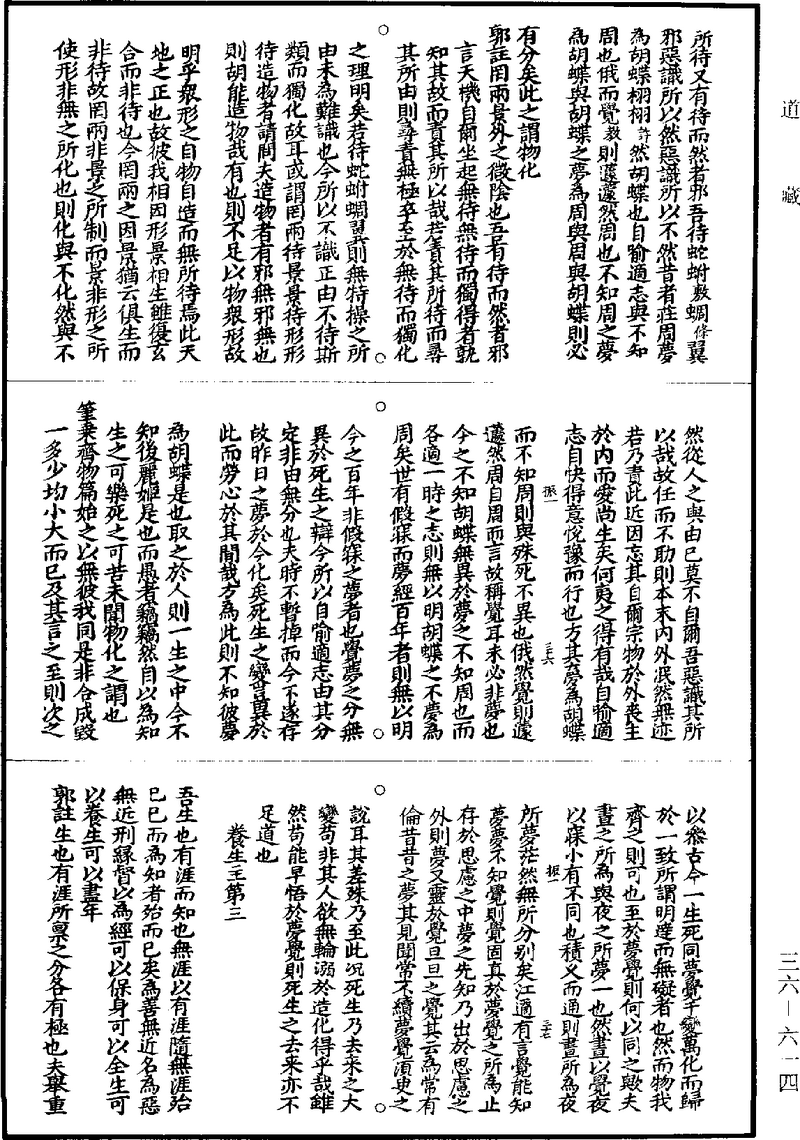 道藏
三六—六一四
所待又有待而然者邪吾待蛇蚹敷蜩條翼
邪惡識所以然惡識所以不然昔者莊周夢
為胡蝶栩栩許然胡蝶也自喻適志與不知
周也俄而覺教則蘧蘧然周也不知周之夢
為胡蝶與胡蝶之夢為周與周與胡蝶則必
有分矣此之謂物化
郭註罔兩景外之微陰也吾有待而然者邪
言天機自爾坐起無待無待而獨得者孰
知其故而責其所以哉若責其所待而尋
其所由則尋責無極卒至於無待而獨化
之理明矣若待蛇蚹蜩翼則無特操之所
由未為難識也今所以不識正由不待斯
類而獨化故耳或謂罔兩待景景待形形
待造物者請問夫造物者有邪無邪無也
則胡能造物哉有也則不足以物衆形故
明乎衆形之自物自造而無所待焉此天
地之正也故彼我相因形景相生雖復玄
合而非待也今罔兩之因景猶云俱生而
非待故罔兩非景之所制而景非形之所
使形非無之所化也則化與不化然與不
然從人之與由己莫不自爾吾惡識其所
以哉故任而不助則本末內外泯然無迹
若乃責此近因忘其自爾宗物於外喪生
於內而愛尚生矣何夷之得有哉自喻適
志自快得意悅豫而行也方其夢為胡蝶
而不知周則與殊死不異也俄然覺則蘧
蘧然周自周而言故稱覺耳未必非夢也
今之不知胡蝶無異於夢之不知周也而
各適一時之志則無以明胡蝶之不夢為
周矣世有假寐而夢經百年者則無以明
今之百年非假寐之夢者也覺夢之分無
異於死生之辯今所以自喻適志由其分
定非由無分也夫時不暫掉而今不遂存
故昨日之夢於今化矣死生之變豈異於
此而勞心於其間哉方為此則不知彼夢
為胡蝶是也取之於人則一生之中今不
知後麗姬是也而愚者竊竊然自以為知
生之可樂死之可苦未聞物化之謂也
筆乘齊物篇始之以無彼我同是非合成毀
一多少均小大而已及其言之至則次之
以參古今一生死同夢覺千變萬化而歸
於一致所謂明達而無礙者也然而物我
齊之則可也至於夢覺則何以同之歟夫
晝之所為與夜之所夢一也然晝以覺夜
以寐小有不同也積久而通則晝所為夜
所夢茫然無所分别矣江遹有言覺能知
夢夢不知覺則覺固真於夢覺之所為止
存於思慮之中夢之先知乃出於思慮之
外則夢又靈於覺旦旦之覺其云為常有
倫昔昔之夢其見聞常不續夢覺須臾之
說耳其差殊乃至此况死生乃去來之大
變苟非其人欲無輪溺於造化得乎哉雖
然苟能早悟於夢覺則死生之去來亦不
足道也
養生主第三
吾生也有涯而知也無涯以有涯隨無涯殆
已已而為知者殆而已矣為善無近名為惡
無近刑緣督以為經可以保身可以全生可
以養生可以盡年
郭註生也有涯所禀之分各有極也夫舉重